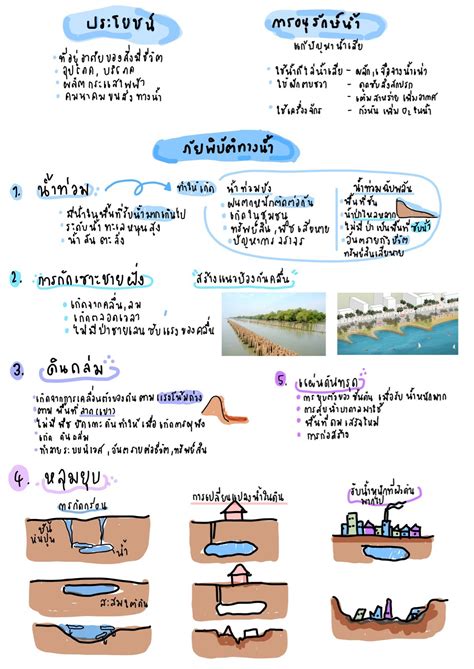 ประโยชน์
ที่อยู่อาศัยของสิ่งมีชีวิต
อุปโภค, บริโภค
ผลิตกระแสไฟฟ้า
คมนาคมขนส่งทางน้ำ
การอนุรักษ์น้ำ
แก้ปัญหาน้ำเสีย
ใช้น้ำดีไล่น้ำเสีย - ผลัก, เจือจางน้ำเน่า
ใช้ผักตบชวา - ดูดซับสิ่งสกปรก
- เติมสารช่วย เพิ่มอากาศ
ใช้เครื่องจักร - กังหัน เพิ่ม O₂ ในน้ำ
ภัยพิบัติทางน้ำ
1. น้ำท่วม
มีน้ำในพื้นที่ซึ่งน้ำมากเกินไป
ระดับน้ำทะเลหนุนสูง
น้ำล้นตะลิ่ง
ทำให้เกิด
น้ำท่วมขัง
ฝนตกหนักติดต่อกัน
เกิดในชุมชน
ทรัพย์สิน, พืชเสียหาย
ปัญหาการจราจร
น้ำท่วมฉับพลัน
พื้นที่ชัน
น้ำป่าไหลหลาก
ไม่มีป่าเป็นพื้นที่ซับน้ำ
อันตรายถึงชีวิต
ทรัพย์สินเสียหาย
2. การกัดเซาะชายฝั่ง
เกิดจากคลื่น, ลม
เกิดตลอดเวลา
ไม่มีป่าชายเลนซับแรงของคลื่น
สร้างแนวป้องกันคลื่น
3. ดินถล่ม
เกิดจากการเคลื่อนตัวของดินตามแรงโน้มถ่วง
ตามพื้นที่ลาดเขา
ไม่มีพืชยึดเกาะดินทำให้เมื่อเกิดการผุพัง
เกิดดินถล่ม
ทำลายระบบนิเวศ, อันตรายต่อชีวิต, ทรัพย์สิน
5. แผ่นดินทรุด
การยุบตัวของชั้นดิน เมื่อรับน้ำหนักมาก
การสูบน้ำบาดาลมาใช้
พื้นที่ถมเสร็จใหม่
การก่อสร้าง
4. หลุมยุบ
การกัดกร่อน
ชั้นหินปูน
น้ำ
สะสมใต้ดิน
การเปลี่ยนแปลงน้ำใต้ดิน
รับน้ำหนักที่ผิวดิน
มากไป